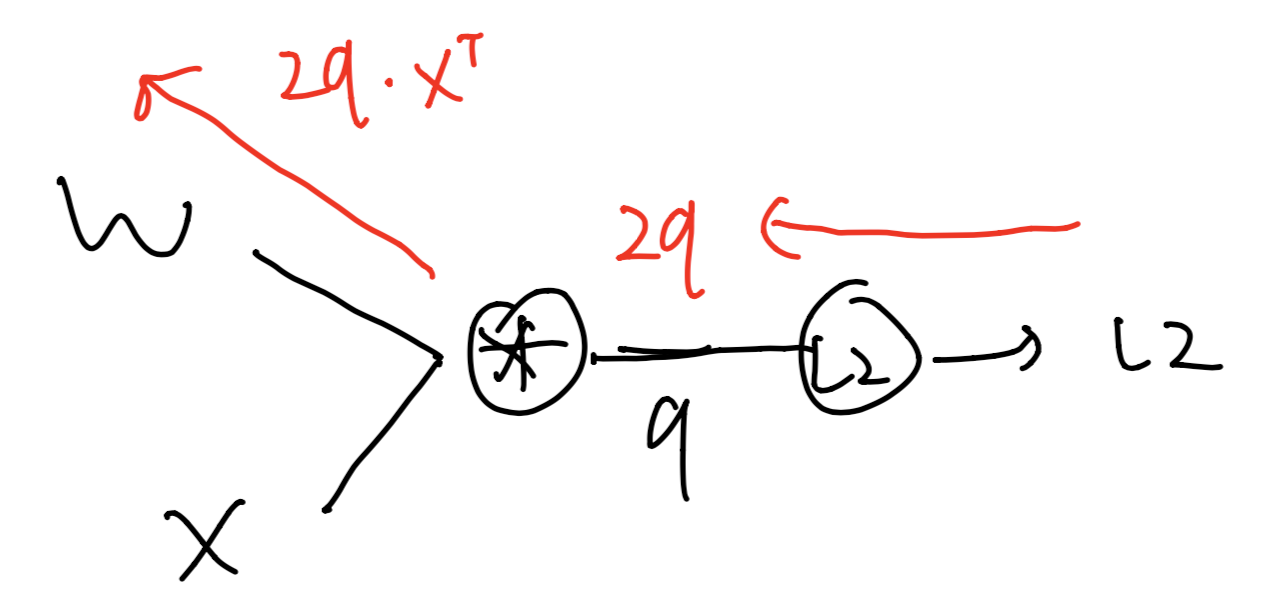 2q · X^T
W
2q
*
L2
L2
q
X